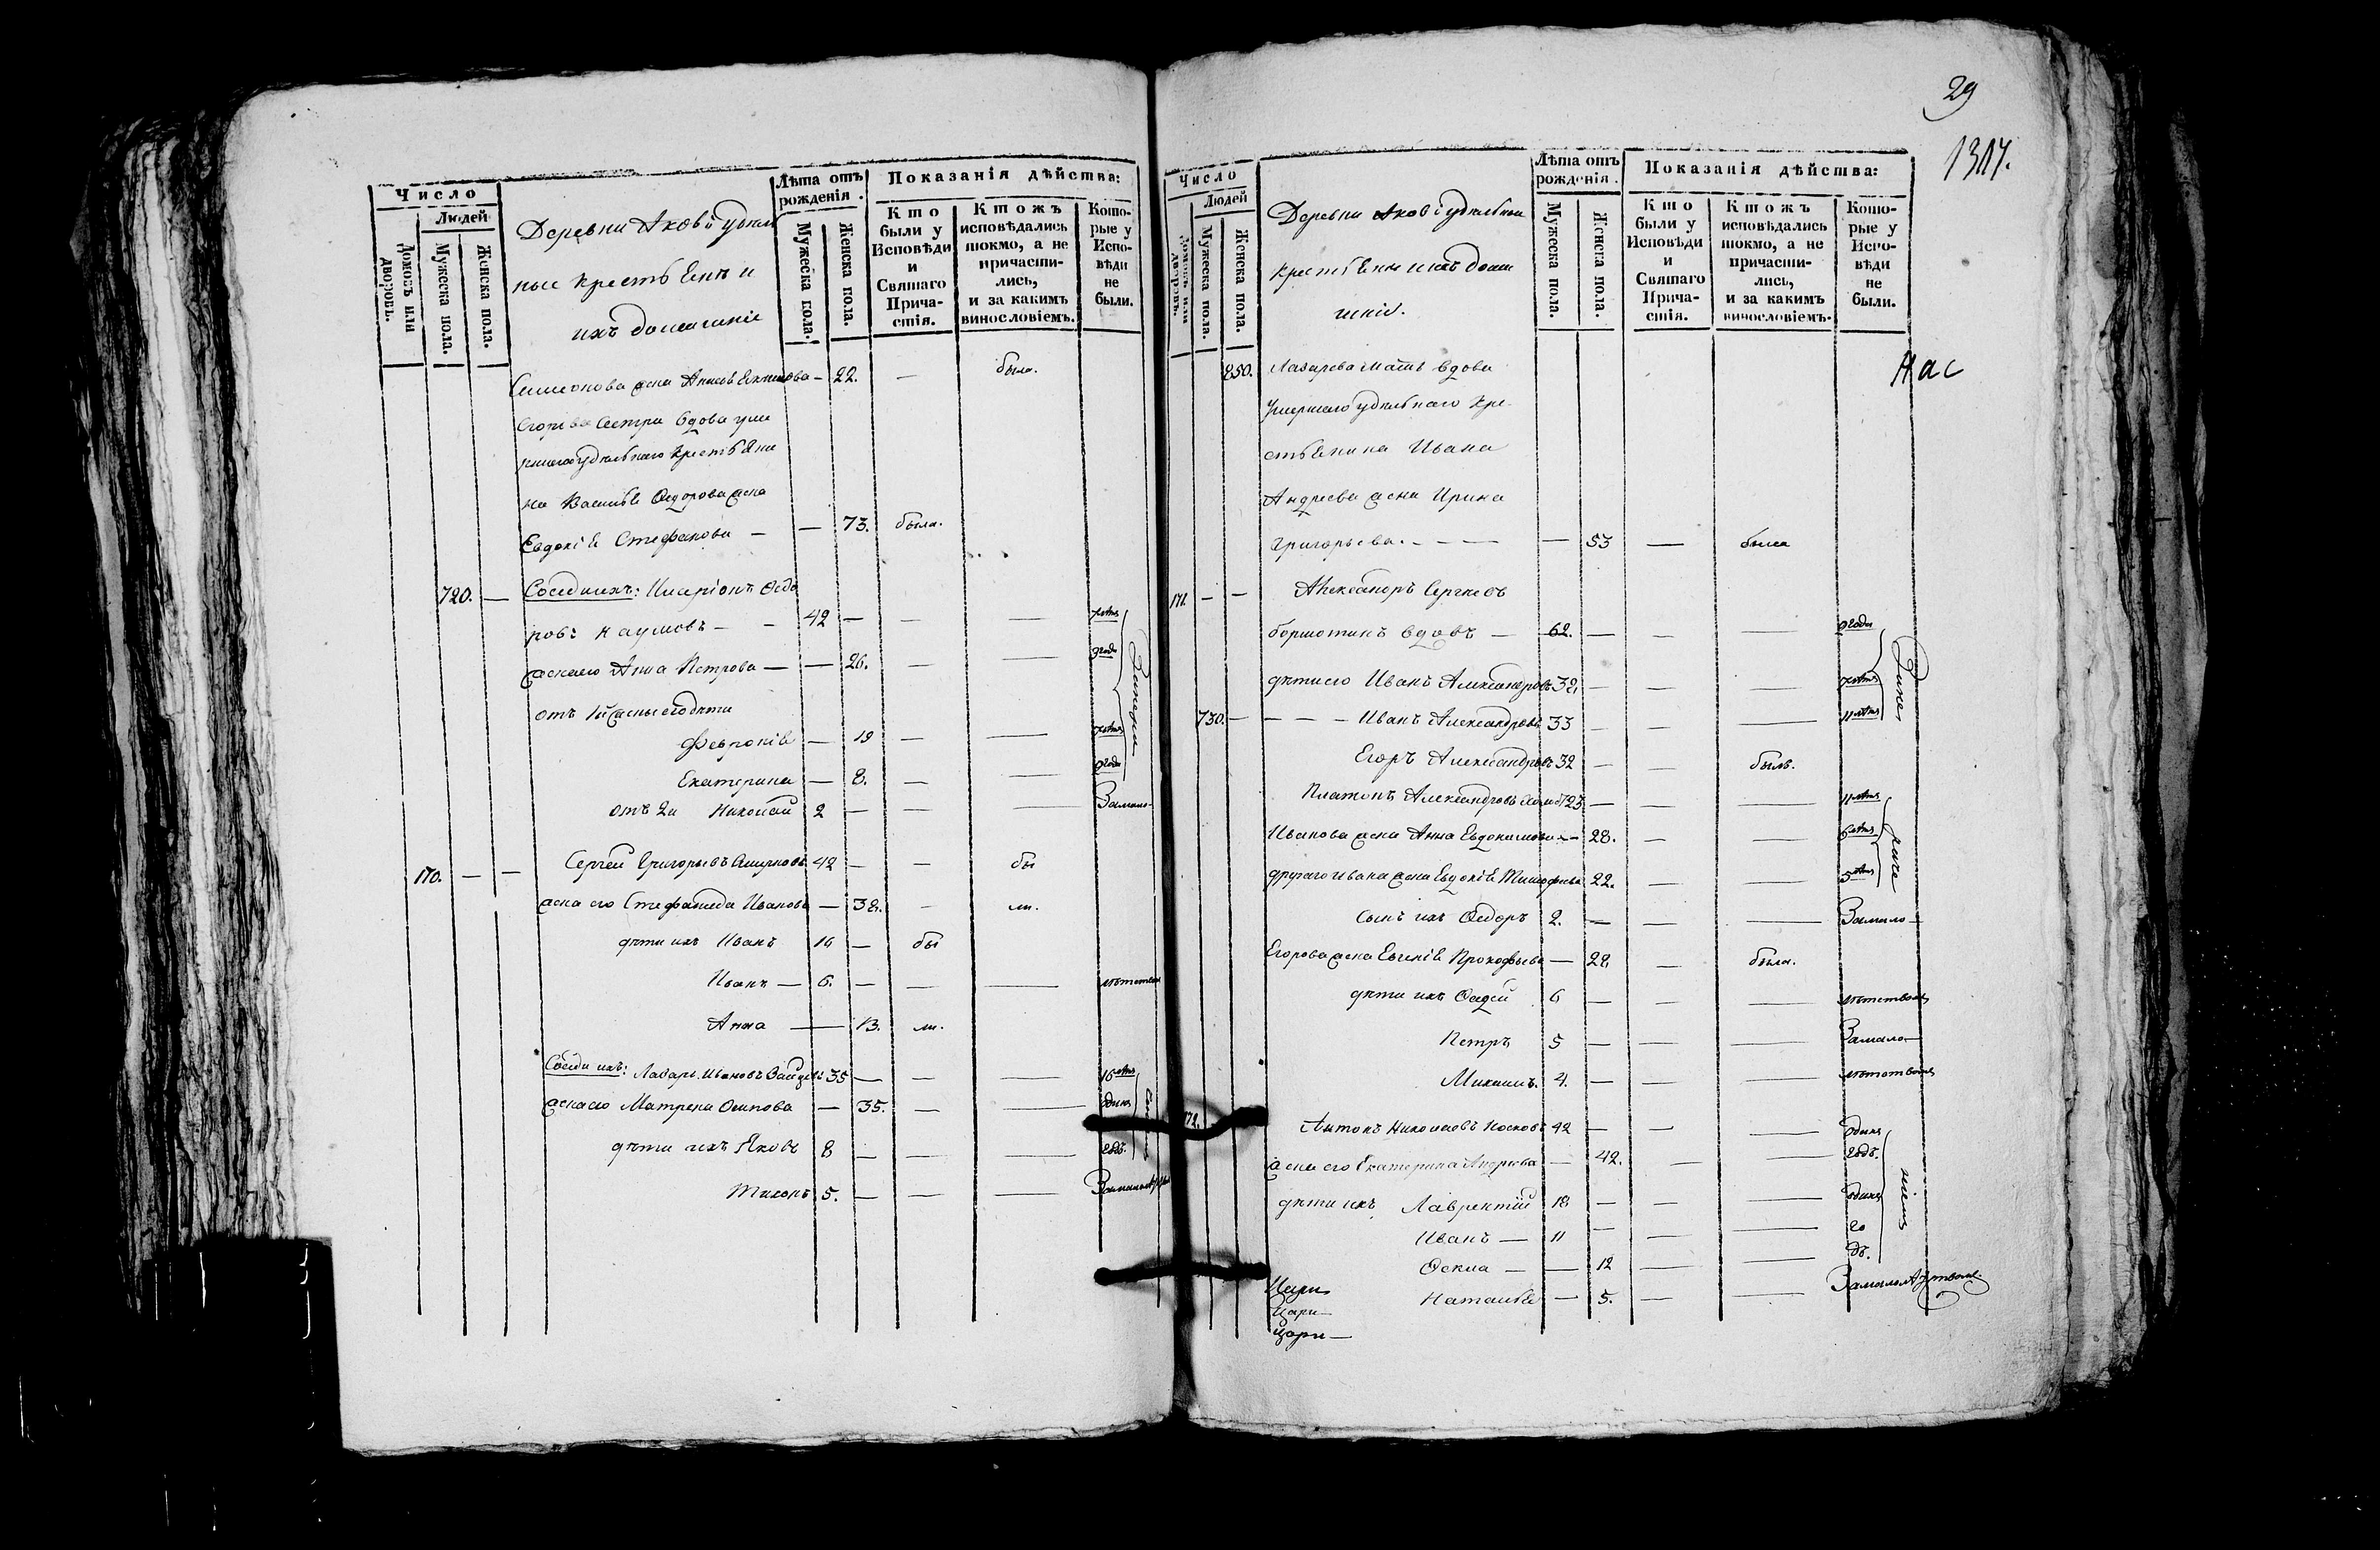 29
1317.
Число
Людей
Домовъ или дворовъ.
Мужеска пола.
Женска пола.
Деревни Аковй удѣль
ные крестьяне и
ихъ домашніе
Лѣта отъ рожденія.
Мужеска пола.
Женска пола.
Показанія дѣйства:
Кто были у Исповѣди и Святаго Причастія.
Ктожъ исповѣдались токмо, а не причастились, и за какимъ винословіемъ.
Которые у Исповѣди не были.
Симеонова жена — 22. — была.
Егорова сестра вдова уме
ршаго удѣльнаго крестьяни
на Василья Ѳедорова жена
Евдокія Стефанова — — 73. была.
720. — Соседи ихъ: Иларіонъ Ѳедо
ровъ Наумовъ — — 42 — — — 7 лѣтъ
жена его Анна Петрова — — 26. — — 3 года
отъ 1й жены его дѣти
Февронія — 19 — — 7 лѣтъ
Екатерина — 8. — — 2 года
отъ 2й Николай 2 — — — Замало-
170. — — Сергей Григорьевъ Смирновъ 42 — — бы
жена его Стефанида Иванова — 38. — ли.
дѣти ихъ Иванъ 16 — бы
Иванъ — 6. — — —
Анна — 13. ли.
Соседи ихъ: Лазарь Ивановъ Зайцевъ 35 — — — 16 лѣтъ
жена его Матрена Осипова — 35. — — одинъ
дѣти ихъ Яковъ 8 — — — годъ.
Тихонъ 5. — — —
Число
Людей
Домовъ или дворовъ.
Мужеска пола.
Женска пола.
Деревни Аковй удѣльные
крестьяне и ихъ дома
шніе.
Лѣта отъ рожденія.
Мужеска пола.
Женска пола.
Показанія дѣйства:
Кто были у Исповѣди и Святаго Причастія.
Ктожъ исповѣдались токмо, а не причастились, и за какимъ винословіемъ.
Которые у Исповѣди не были.
Нас
850. Лазарева мать вдова
умершаго удѣльнаго кре-
стьянина Ивана
Андреева жена Ирина
Григорьева. — — — — 53 — была
171. — — Александръ Сергѣевъ
вдовъ — 62. — — — 2 года
дѣти его Иванъ Александровъ 38. — — — 7 лѣтъ
730. — — — — Иванъ Александровъ 33 — — — 11 лѣтъ
Егоръ Александровъ 32 — — былъ.
Платонъ Александровъ 23 — — — 11 лѣтъ
Иванова жена Анна Евдокимова — 28. — — 6 лѣтъ
другаго Ивана жена Евдокія Тимофѣева 22. — — 5 лѣтъ
сынъ ихъ Ѳедоръ 2. — — — Замало-
Егорова жена Евгенія Прокофьева — 28 — была.
дѣти ихъ Фадей 6 — — —
Петръ 5 — — — Замало-
Михаилъ. 4. — — —
172. Антонъ Николаевъ Носковъ 42 — — — одинъ
жена его Екатерина Андреева — 42. — — годъ.
дѣти ихъ Лаврентій 18 — — — одинъ
Иванъ — 11 — — — го
Ѳекла — — 12 — — дъ.
Наталья — 5. — — Замалолѣтствомъ
Цари
Цари—
Цари—